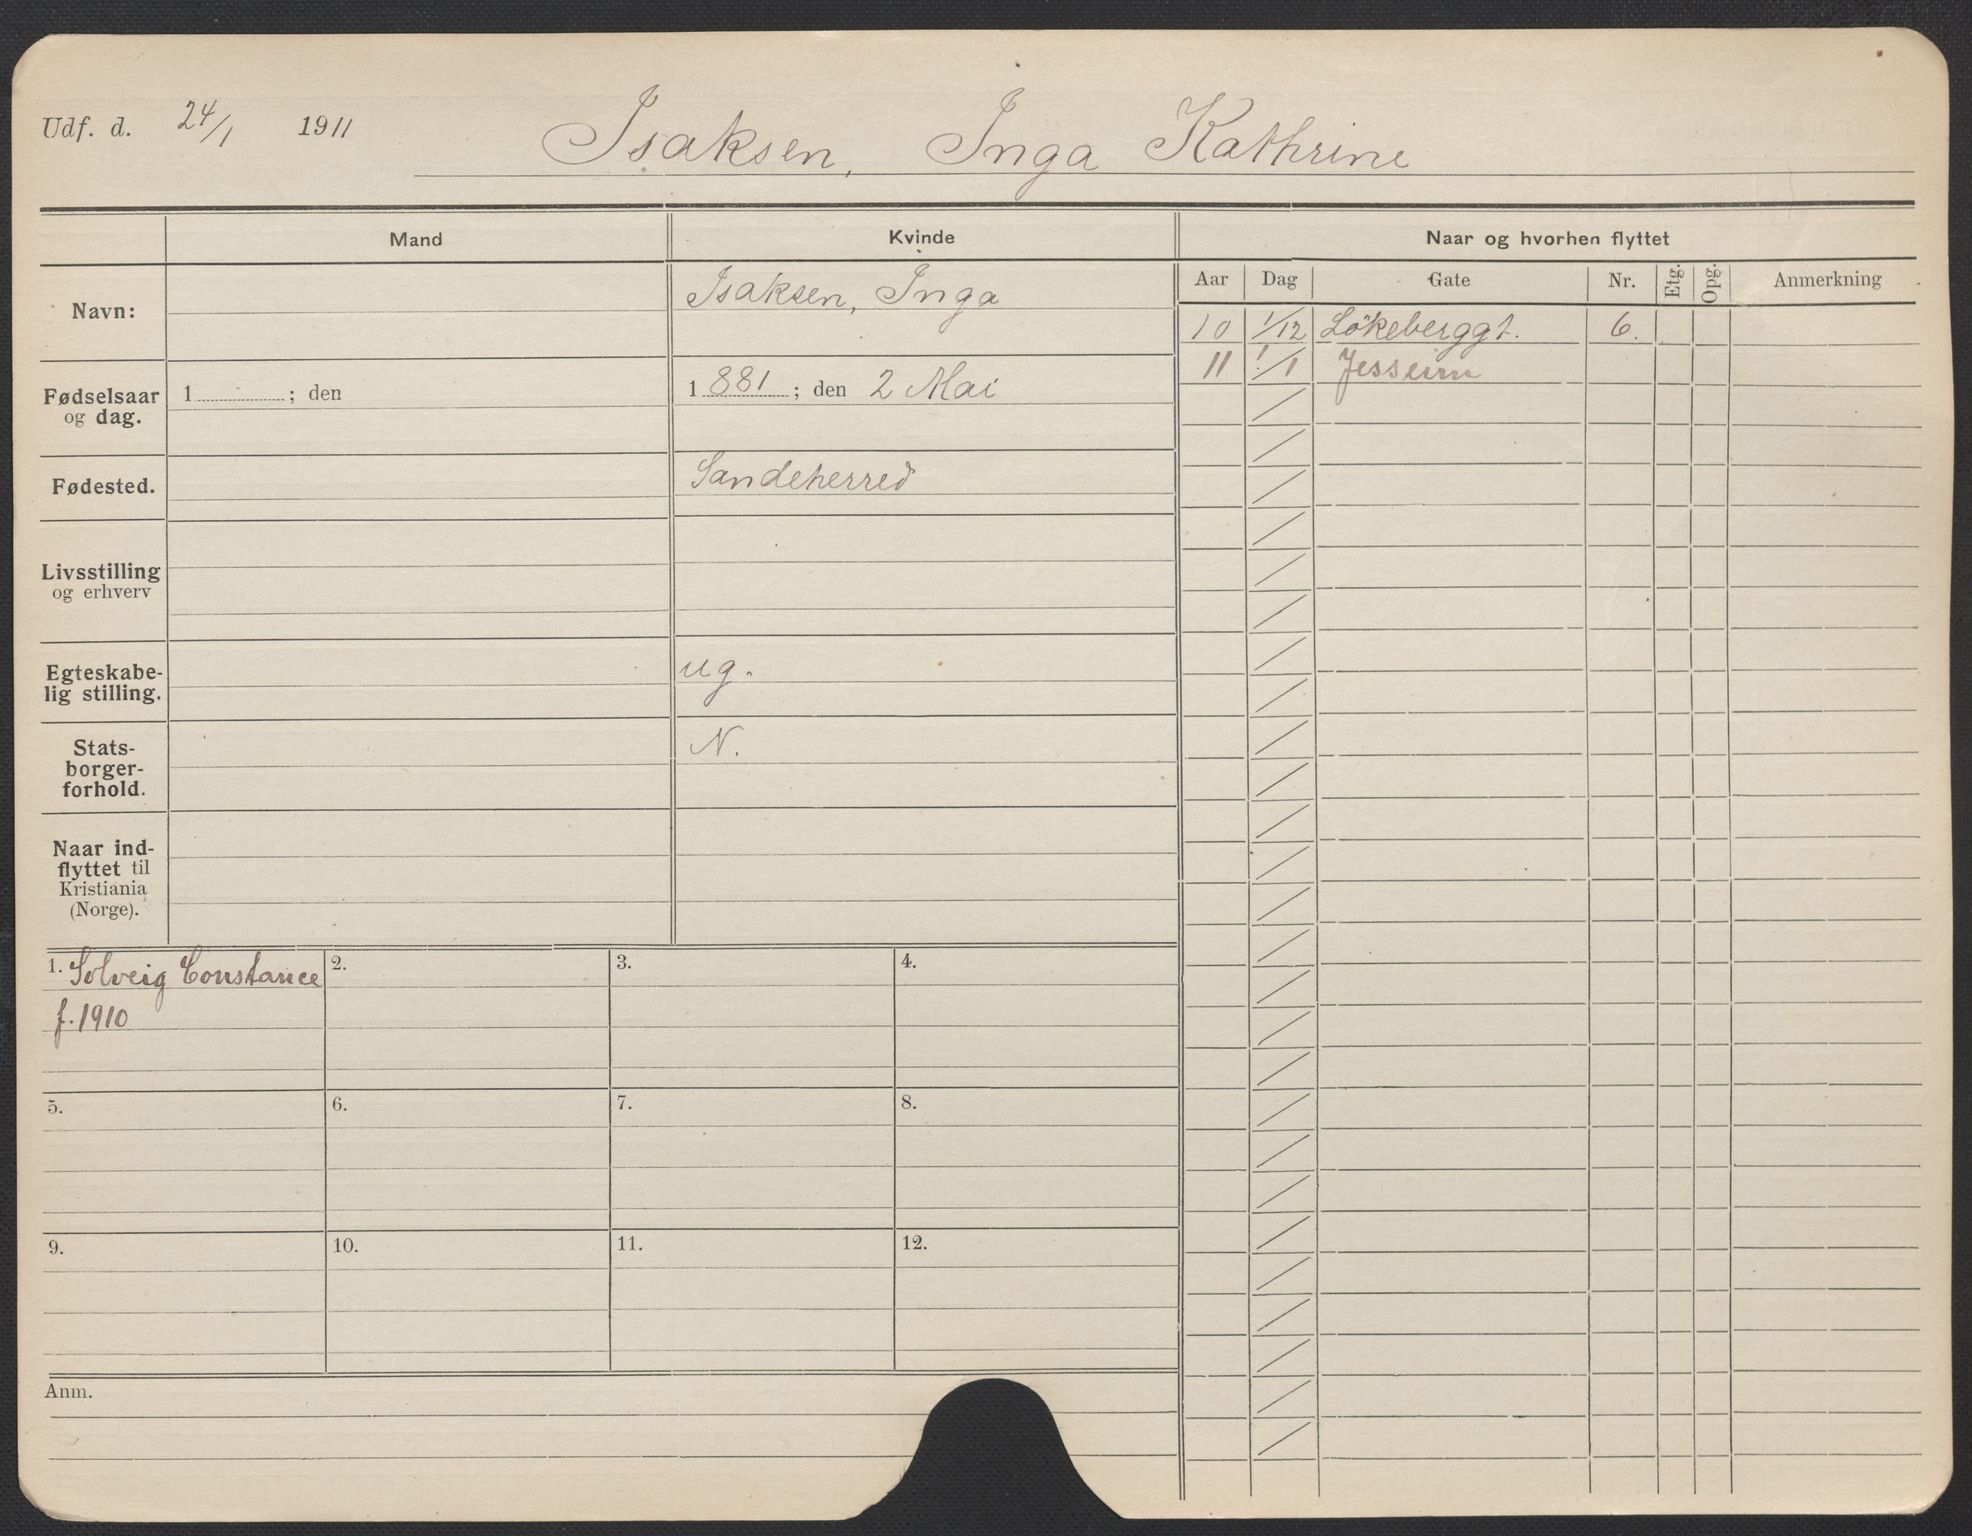 Udf. d. 24/1 1911 Isaksen, Inga Kathrine
Mand Kvinde Naar og hvorhen flyttet
Aar Dag Gate Nr. Etg. Opg. Anmerkning
Navn: Isaksen, Inga
10 1/12 Lökeberggt. 6.
11 1/1 Jesseim
Fødselsaar
og dag.
1 ; den 1 881 ; den 2 Mai
Fødested. Sandeherred
Livsstilling
og erhverv
Egteskabe-
lig stilling.
ug.
Stats-
borger-
forhold.
N.
Naar ind-
flyttet til
Kristiania
(Norge).
1. Solveig Constance
f. 1910
2. 3. 4.
5. 6. 7. 8.
9. 10. 11. 12.
Anm.